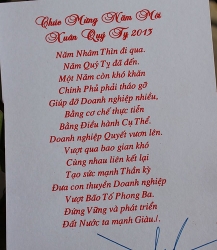 Chúc Mừng Năm Mới
Xuân Quý Tỵ 2013
Năm Nhâm Thìn đi qua.
Năm Quý Tỵ đã đến.
Một Năm còn khó khăn
Chính Phủ phải tháo gỡ
Giúp đỡ Doanh nghiệp nhiều,
Bằng cơ chế thực tiễn
Bằng Điều hành Cụ Thể.
Doanh nghiệp Quyết vươn lên.
Vượt qua bao gian khó
Cùng nhau liên kết lại
Tạo sức mạnh Thần kỳ
Đưa con thuyền Doanh nghiệp
Vượt Bão Tố Phong Ba.
Đứng Vững và phát triển
Đất Nước ta mạnh Giàu./.